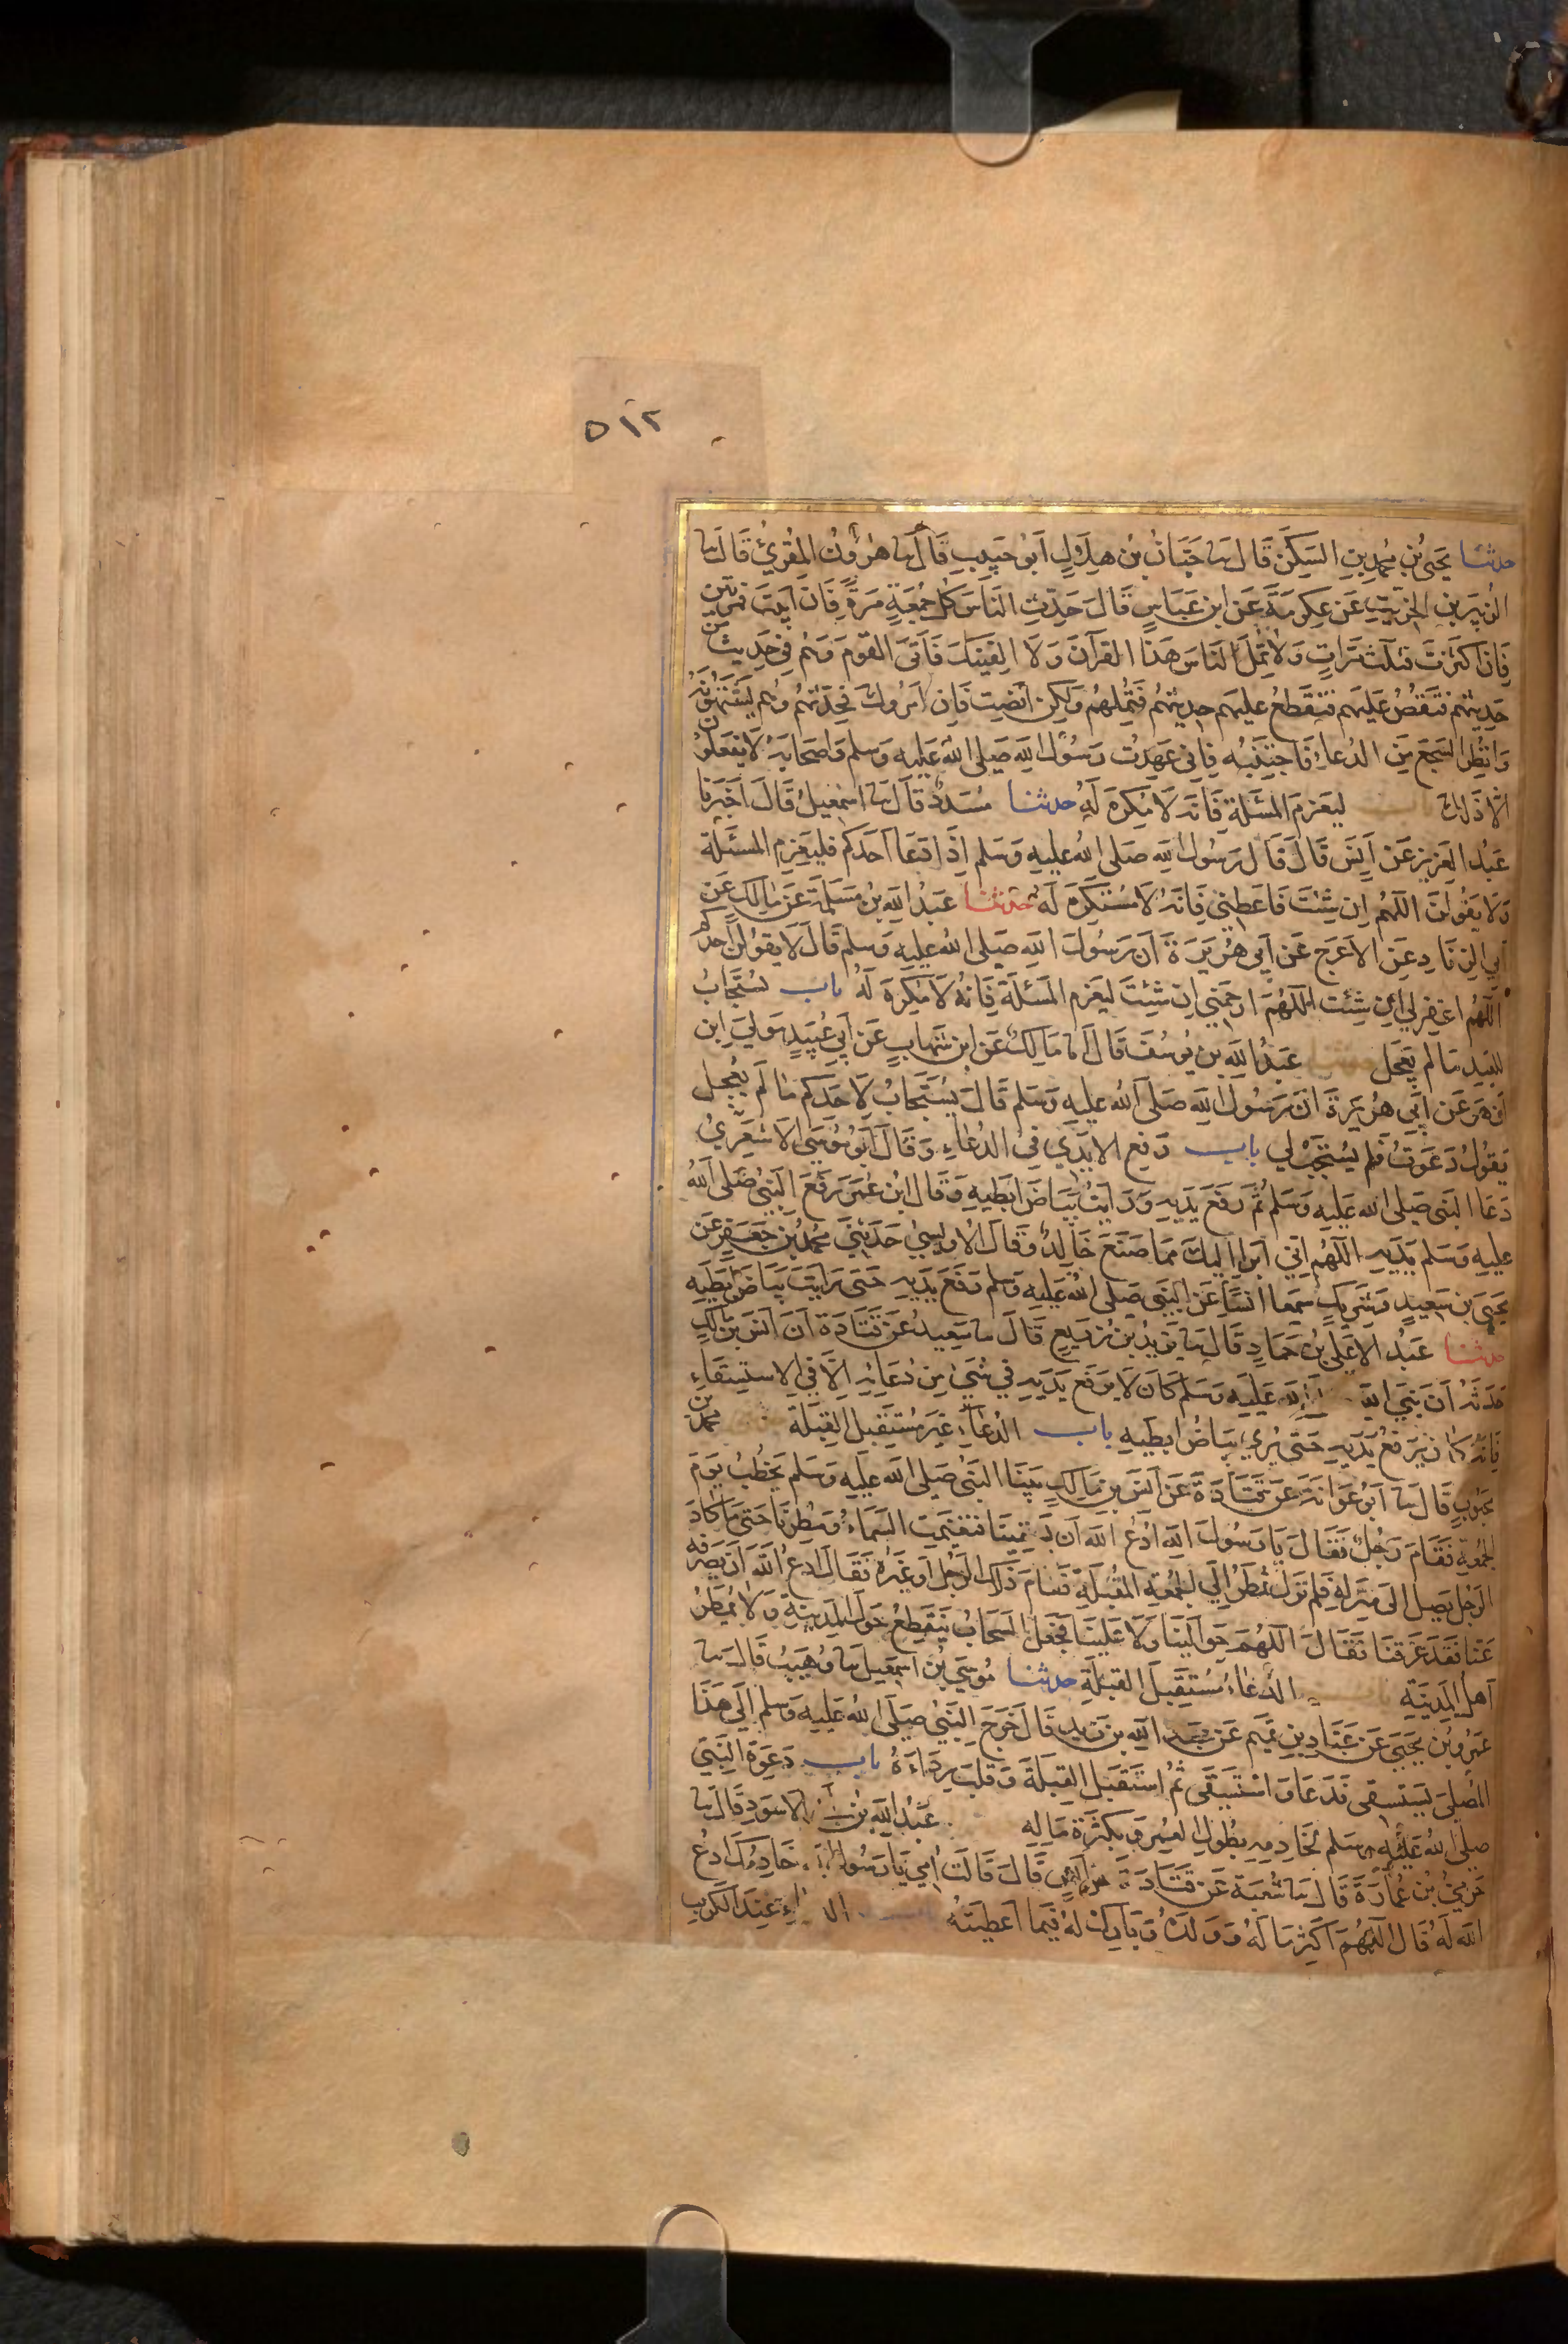 ٥١٢
حدثنا يحيى بن محمد بن السكن قال نا حبان بن هلال ابو حبيب قال نا هرون المقرئ قال نا
الزبير بن الخريت عن عكرمة عن ابن عباس قال حدث الناس كل جمعة مرة فان ابيت فمرتين
فان اكثرت فثلث مرات ولا تمل الناس هذا القرآن ولا الفينك تأتى القوم وهم في حديث من
حديثهم فتقص عليهم فتقطع عليهم حديثهم فتملهم ولكن انصت فان امروك فحدثهم وهم يشتهونه
وانظر السجع من الدعاء فاجتنبه فاني عهدت رسول الله صلى الله عليه وسلم واصحابه لا يفعلون
الا ذلك ليعزم المسئلة فانه لا مكره له حدثنا مسدد قال نا اسمعيل قال اخبرنا
عبد العزيز عن انس قال قال رسول الله صلى الله عليه وسلم اذا دعا احدكم فليعزم المسئلة
ولا يقولن اللهم ان شئت فاعطني فانه لا مستكره له حدثنا عبد الله بن مسلمة عن مالك عن
ابي الزناد عن الاعرج عن ابي هريرة ان رسول الله صلى الله عليه وسلم قال لا يقولن احدكم
اللهم اغفر لي ان شئت اللهم ارحمني ان شئت ليعزم المسئلة فانه لا مكره له باب يستجاب
للعبد ما لم يعجل حدثنا عبد الله بن يوسف قال انا مالك عن ابن شهاب عن ابي عبيد مولى ابن
ازهر عن ابي هريرة ان رسول الله صلى الله عليه وسلم قال يستجاب لاحدكم ما لم يعجل
يقول دعوت فلم يستجب لي باب رفع الايدي في الدعاء وقال ابو موسى الاشعري
دعا النبي صلى الله عليه وسلم ثم رفع يديه ورايت بياض ابطيه وقال ابن عمر رفع النبي صلى الله
عليه وسلم يديه اللهم اني ابرا اليك مما صنع خالد وقال الاويسي حدثني محمد بن جعفر عن
يحيى بن سعيد وشريك سمعا انسا عن النبي صلى الله عليه وسلم رفع يديه حتى رايت بياض ابطيه
حدثنا عبد الاعلى بن حماد قال نا يزيد بن زريع قال نا سعيد عن قتادة ان انس بن مالك
حدثه ان نبي الله الله عليه وسلم كان لا يرفع يديه في شيء من دعائه الا في الاستسقاء
فانه كان يرفع يديه حتى يرى بياض ابطيه باب الدعاء غير مستقبل القبلة محمد بن
محبوب قال نا ابو عوانة عن قتادة عن انس بن مالك بينا النبي صلى الله عليه وسلم يخطب يوم
الجمعة فقام رجل فقال يا رسول الله ادع الله ان يسقينا فتغيمت السماء ومطرنا حتى ما كاد
الرجل يصل الى منزله فلم تزل تمطر الى الجمعة المقبلة فقام ذلك الرجل او غيره فقال ادع الله ان يصرفه
عنا فقد غرقنا فقال اللهم حوالينا ولا علينا فجعل السحاب يتقطع حول المدينة ولا يمطر
اهل المدينة باب الدعاء مستقبل القبلة حدثنا موسى بن اسمعيل نا وهيب قال نا
عمرو بن يحيى عن عباد بن تميم عن عبد الله بن زيد قال خرج النبي صلى الله عليه وسلم الى هذا
المصلى يستسقى فدعا واستسقى ثم استقبل القبلة وقلب رداءه باب دعوة النبي
صلى الله عليه وسلم لخادمه بطول العمر وبكثرة ماله عبد الله بن الاسود قال نا
حرمي بن عمارة قال نا شعبة عن قتادة عن انس قال قالت امي يا رسول الله خادمك ادع
الله له قال اللهم اكثر ماله وولده وبارك له فيما اعطيته عند الكرب